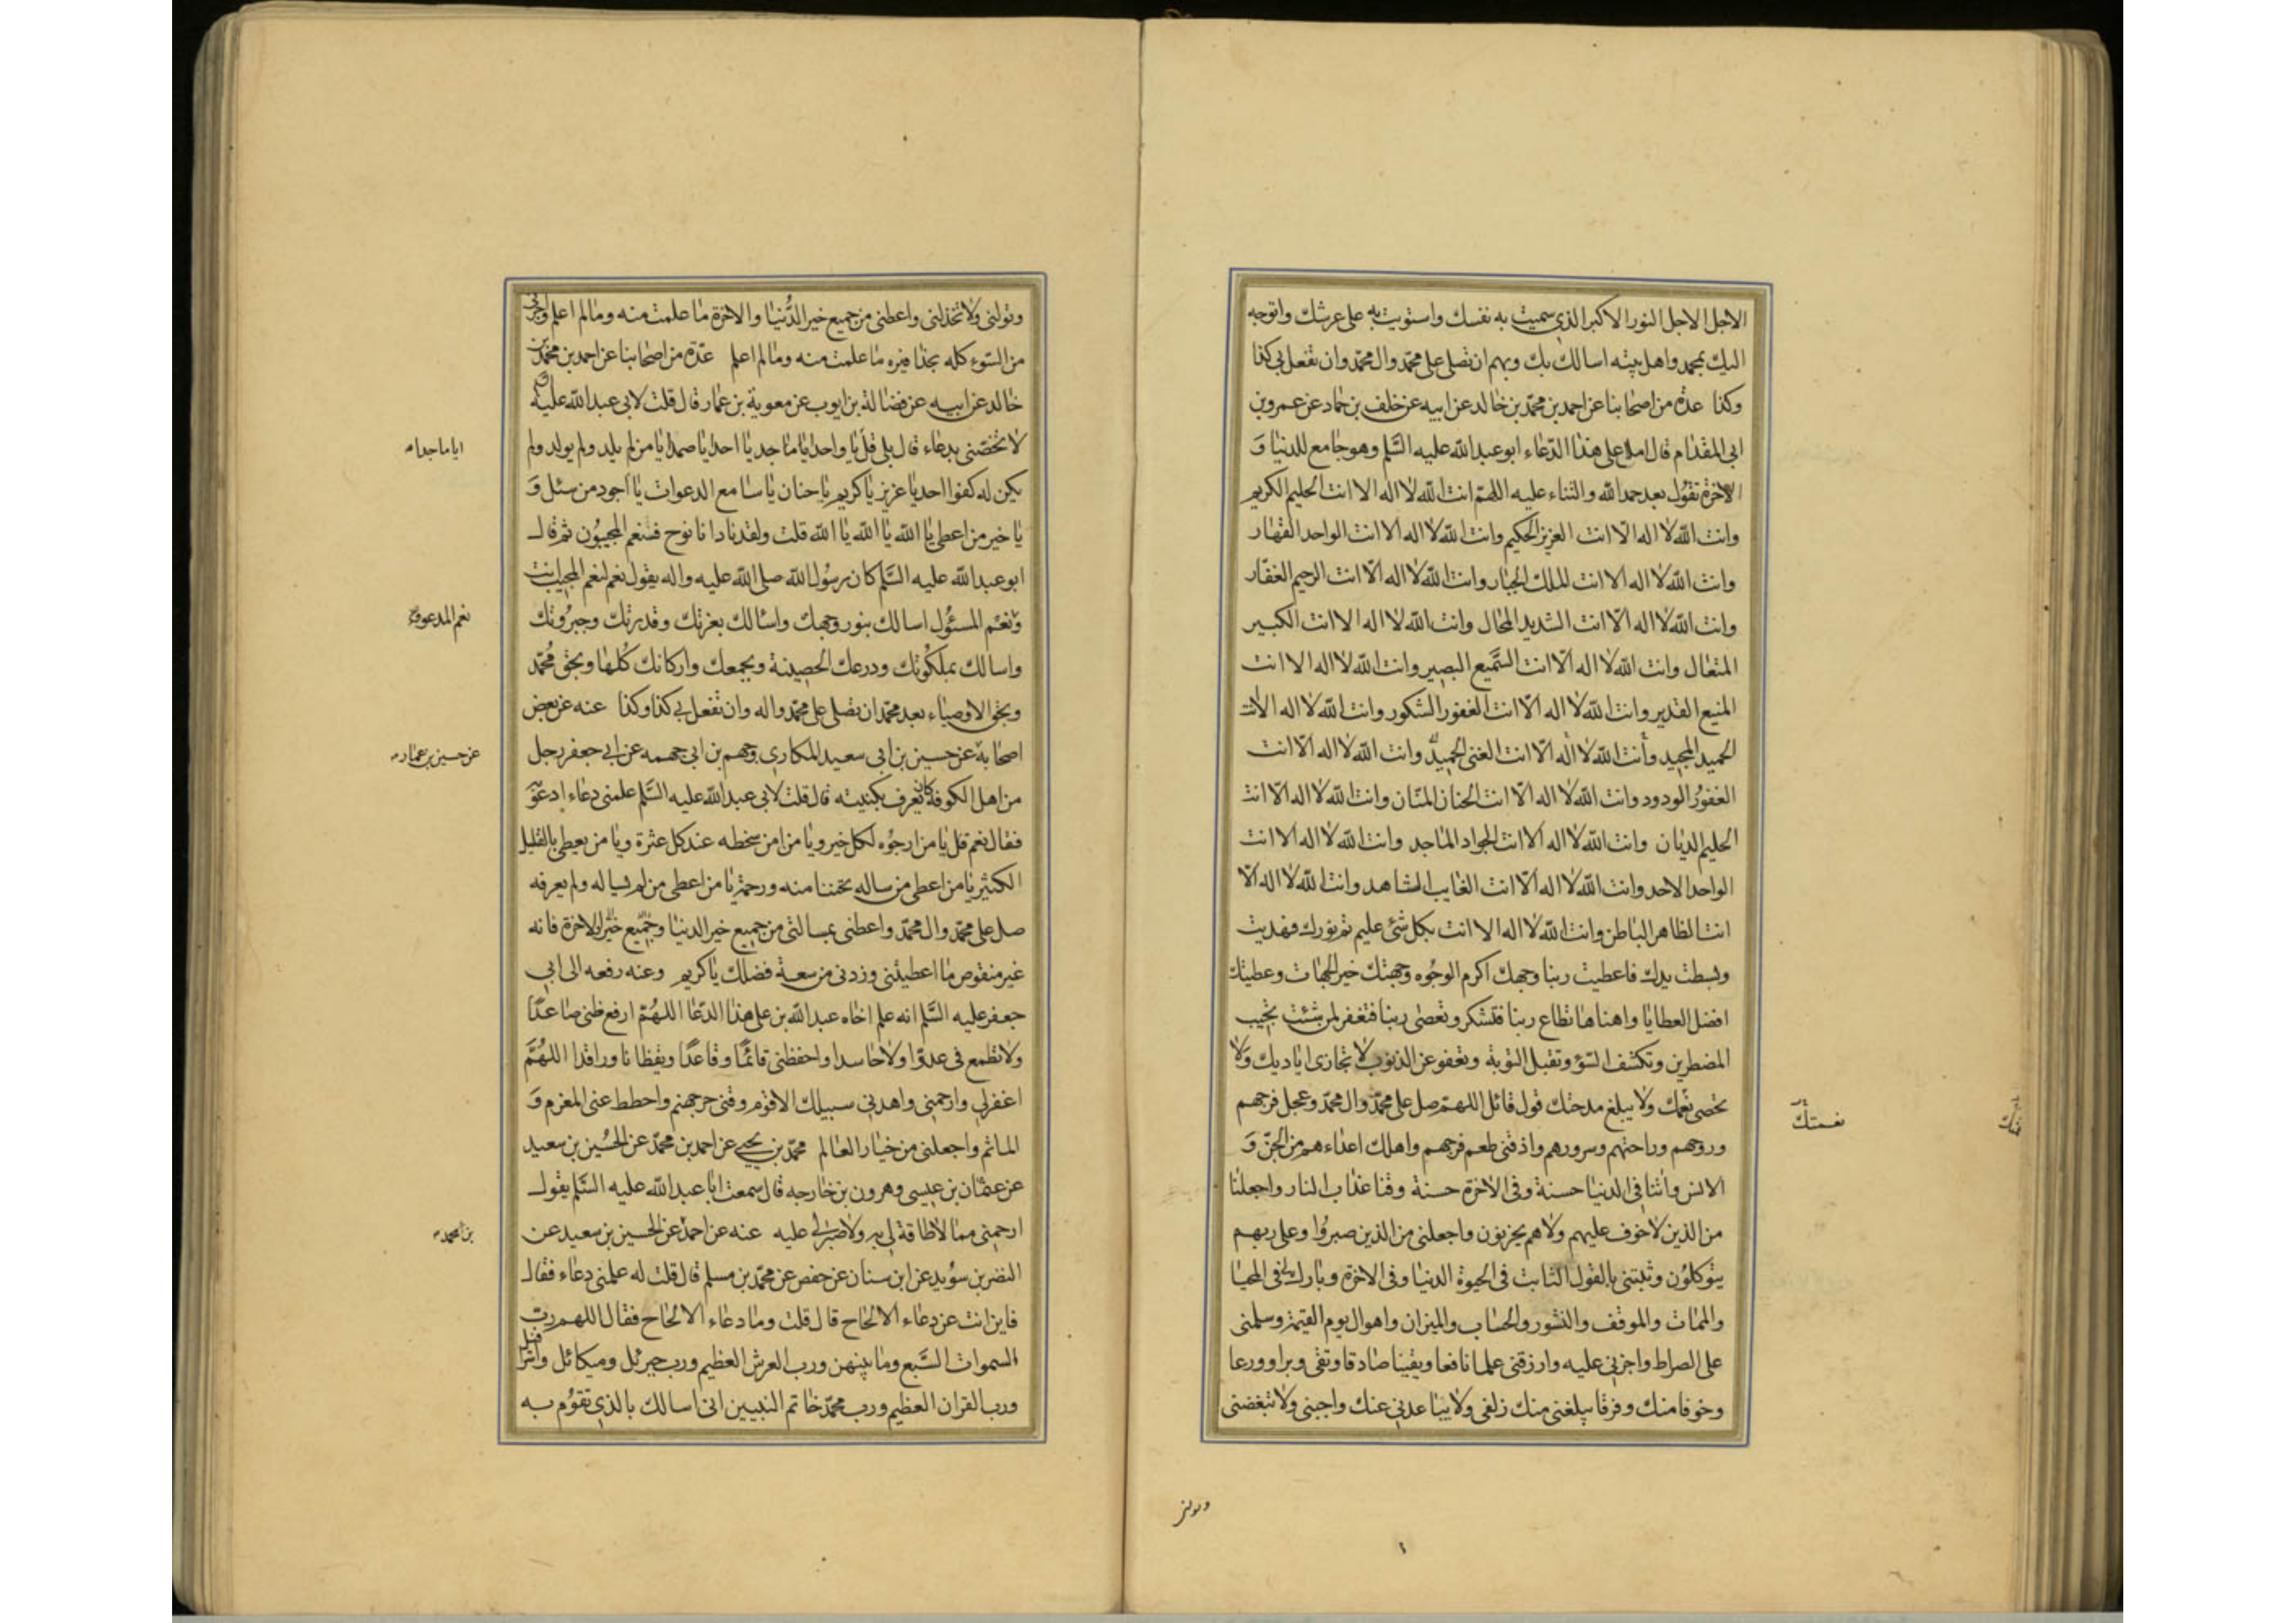 الاجل الاجل النور الاكبر الذى سميت به نفسك واستويت به على عرشك واتوجه
اليك بمحمد واهل بيته اسالك بك وبهم ان تصلى على محمّد وال محمّد وان تفعل بى كذا
وكذا عدة من اصحابنا عن احمد بن محمّد بن خالد عن ابيه عن خلف بن حماد عن عمرو بن
ابى المقدام قال املا على هذا الدّعاء ابو عبد الله عليه السَّلم وهو جامع للدنيا وَ
الاخرة تقول بعد حمد الله والثناء عليه اللهمّ انت الله لا اله الا انت الحليم الكريم
وانت الله لا اله الا انت العزيز الحكيم وانت الله لا اله الا انت الواحد القهار
وانت الله لا اله الا انت الملك الجبار وانت الله لا اله الّا انت الرحيم الغفّار
وانت الله لا اله الّا انت الشديد المحال وانت الله لا اله الا انت الكبير
المتعال وانت الله لا اله الّا انت السَّميع البصير وانت الله لا اله الا انت
المنيع القدير وانت الله لا اله الّا انت الغفور الشكور وانت الله لا اله الا انت
الحميد المجيد وأنت الله لا اله الّا انت الغنى الحميد وانت الله لا اله الّا انت
الغفور الودود وانت الله لا اله الّا انت الحنان المنّان وانت الله لا اله الّا انت
الحليم الديان وانت الله لا اله الا انت الجواد الماجد وانت الله لا اله الا انت
الواحد الاحد وانت الله لا اله الّا انت الغايب الشاهد وانت الله لا اله الّا
انت الظاهر الباطن وانت الله لا اله الا انت بكل شئ عليم تم نورك فهديت
وبسطت يدك فاعطيت ربنا وجهك اكرم الوجوه وجهتك خير الجهات وعطيتك
افضل العطايا واهناها تطاع ربنا فتشكر وتعصى ربنا فتغفر لمن شئت تجيب
المضطرين وتكشف السّوء وتقبل التوبة وتعفو عن الذنوب لا تجازى اياديك ولا
تحصى نعمك ولا يبلغ مدحتك قول قائل اللهمّ صل على محمّد وال محمّد وعجل فرجهم
نعمتك
وروحهم وراحتهم وسرورهم واذقنى طعم فرجهم واهلك اعداءهم من الجنّ وَ
الانس واتنا فى الدنيا حسنة وفى الاخرة حسنة وقنا عذاب النار واجعلنا
من الذين لا خوف عليهم ولا هم يحزنون واجعلنى من الذين صبروا وعلى ربهم
يتوكلون وثبتنى بالقول الثابت فى الحيوة الدنيا وفى الاخرة وبارك لى فى المحيا
والممات والموقف والنشور والحساب والميزان واهوال يوم القيمة وسلمنى
على الصراط واجزنى عليه وارزقنى علما نافعا ويقينا صادقا وتقى وبرا وورعا
وخوفا منك وفرقا يبلغنى منك زلفى ولا يباعدنى عنك واحبنى ولا تبغضنى
وتولنى
وتولنى ولا تخذلنى واعطنى من جميع خير الدُّنيا والاخرة ما علمت منه وما لم اعلم واجرنى
من السّوء كله بحذافيره ما علمت منه وما لم اعلم عدّة من اصحابنا عن احمد بن محمّد بن
خالد عن ابيه عن فضالة بن ايوب عن معوية بن عمار قال قلت لابى عبد الله عليه
لا تخصّنى بدعاء قال بلى قل يا واحد يا ماجد يا احد يا صمد يا من لم يلد ولم يولد ولم
ايا ماجدا
يكن له كفوا احد يا عزيز يا كريم يا حنان يا سامع الدعوات يا اجود من سئل وَ
يا خير من اعطى يا الله يا الله يا الله قلت ولقد نادانا نوح فلنعم المجيبون ثم قال
ابو عبد الله عليه السَّلم كان رسول الله صلى الله عليه واله يقول نعم لنعم المجيب انت
ونعم المسئول اسالك بنور وجهك واسالك بعزتك وقدرتك وجبروتك
نعم المدعو
واسالك بملكوتك ودرعك الحصينة وبجمعك واركانك كلها وبحق محمّد
وبحق الاوصياء بعد محمّد ان تصلى على محمّد واله وان تفعل بى كذا وكذا عنه عن بعض
اصحابه عن حسين بن ابى سعيد المكارى وجهم بن ابى جهمه عن ابى جعفر رجل
عن حسين بن عماره
من اهل الكوفة كان يعرف بكنيته قال قلت لابى عبد الله عليه السَّلم علمنى دعاء ادعو
فقال نعم قل يا من ارجوه لكل خير ويا من امن سخطه عند كل عثرة ويا من يعطى بالقليل
الكثير يا من اعطى من ساله تحننا منه ورحمة يا من اعطى من لم يساله ولم يعرفه
صل على محمّد وال محمّد واعطنى بمسالتى من جميع خير الدنيا وجميع خير الاخرة فانه
غير منقوص ما اعطيتنى وزدنى من سعة فضلك يا كريم وعنه رفعه الى ابى
جعفر عليه السَّلم انه علم اخاه عبد الله بن على هذا الدّعا اللهُمّ ارفع ظنى صاعدًا
ولا تطمع فى عدوّا ولا حاسدا واحفظنى قائمًا وقاعدًا ويقظانا وراقدا اللهُمَّ
اغفر لى وارحمنى واهدنى سبيلك الاقوم وقنى حر جهنم واحطط عنى المغرم وَ
الماثم واجعلنى من خيار العالم محمّد بن يحيى عن احمد بن محمّد عن الحُسين بن سعيد
عن عثمان بن عيسى وهرون بن خارجه قال سمعت ابا عبد الله عليه السَّلم يقول
ارحمنى مما لا طاقة لى به ولا صبر لى عليه عنه عن احمد عن الحسين بن سعيد عن
بن محمد
النضر بن سويد عن ابن سنان عن حفص عن محمّد بن مسلم قال قلت له علمنى دعاء فقال
فاين انت عن دعاء الالحاح قال قلت وما دعاء الالحاح فقال اللهم رب
السموات السَّبع وما بينهن ورب العرش العظيم ورب جبرئل وميكائل واسرافيل
ورب القران العظيم ورب محمّد خاتم النبيين انى اسالك بالذى تقوم به